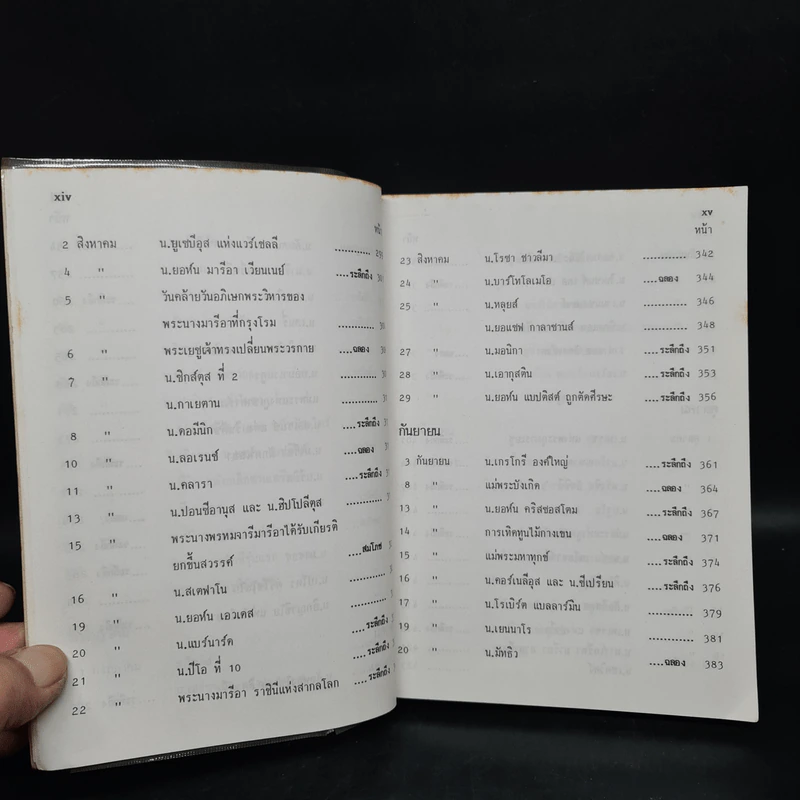 xiv
หน้า
2 สิงหาคม น.ยูเซบีอุส แห่งแวร์เชลลี ............
4 " น.ยอห์น มารีอา เวียนเนย์ ....ระลึกถึง
5 " วันคล้ายวันอภิเษกพระวิหารของ
พระนางมารีอาที่กรุงโรม ............
6 " พระเยซูเจ้าทรงเปลี่ยนพระวรกาย ....ฉลอง
7 " น.ซิกส์ตุส ที่ 2 ............
น.กาเยตาน ............
8 " น.ดอมีนิก ....ระลึกถึง
10 " น.ลอเรนซ์ ....ฉลอง
11 " น.คลารา ....ระลึกถึง
13 " น.ปอนซีอานุส และ น.ฮิปโปลีตุส ............
15 " พระนางพรหมจารีมารีอาได้รับเกียรติ
ยกขึ้นสวรรค์ ....สมโภช
16 " น.สเตฟาโน ............
19 " น.ยอห์น เอวเดส ............
20 " น.แบร์นาร์ด ....ระลึกถึง
21 " น.ปีโอ ที่ 10 ....ระลึกถึง
22 " พระนางมารีอา ราชินีแห่งสากลโลก ....ระลึกถึง
xv
หน้า
23 สิงหาคม น.โรซา ชาวลีมา ............ 342
24 " น.บาร์โทโลเมโอ ....ฉลอง 344
25 " น.หลุยส์ ............ 346
น.ยอแซฟ กาลาซานส์ ............ 348
27 " น.มอนิกา ....ระลึกถึง 351
28 " น.เอากุสติน ....ระลึกถึง 353
29 " น.ยอห์น แบปติสต์ ถูกตัดศีรษะ ....ระลึกถึง 356
กันยายน
3 กันยายน น.เกรโกรี องค์ใหญ่ ....ระลึกถึง 361
8 " แม่พระบังเกิด ....ฉลอง 364
13 " น.ยอห์น คริสซอสโตม ....ระลึกถึง 367
14 " การเทิดทูนไม้กางเขน ....ฉลอง 371
15 " แม่พระมหาทุกข์ ....ระลึกถึง 374
16 " น.คอร์เนลีอุส และ น.ซีเปรียน ....ระลึกถึง 376
17 " น.โรเบิร์ต แบลลาร์มิน ............ 379
19 " น.เยนนาโร ............ 381
20 " น.มัทธิว ....ฉลอง 383